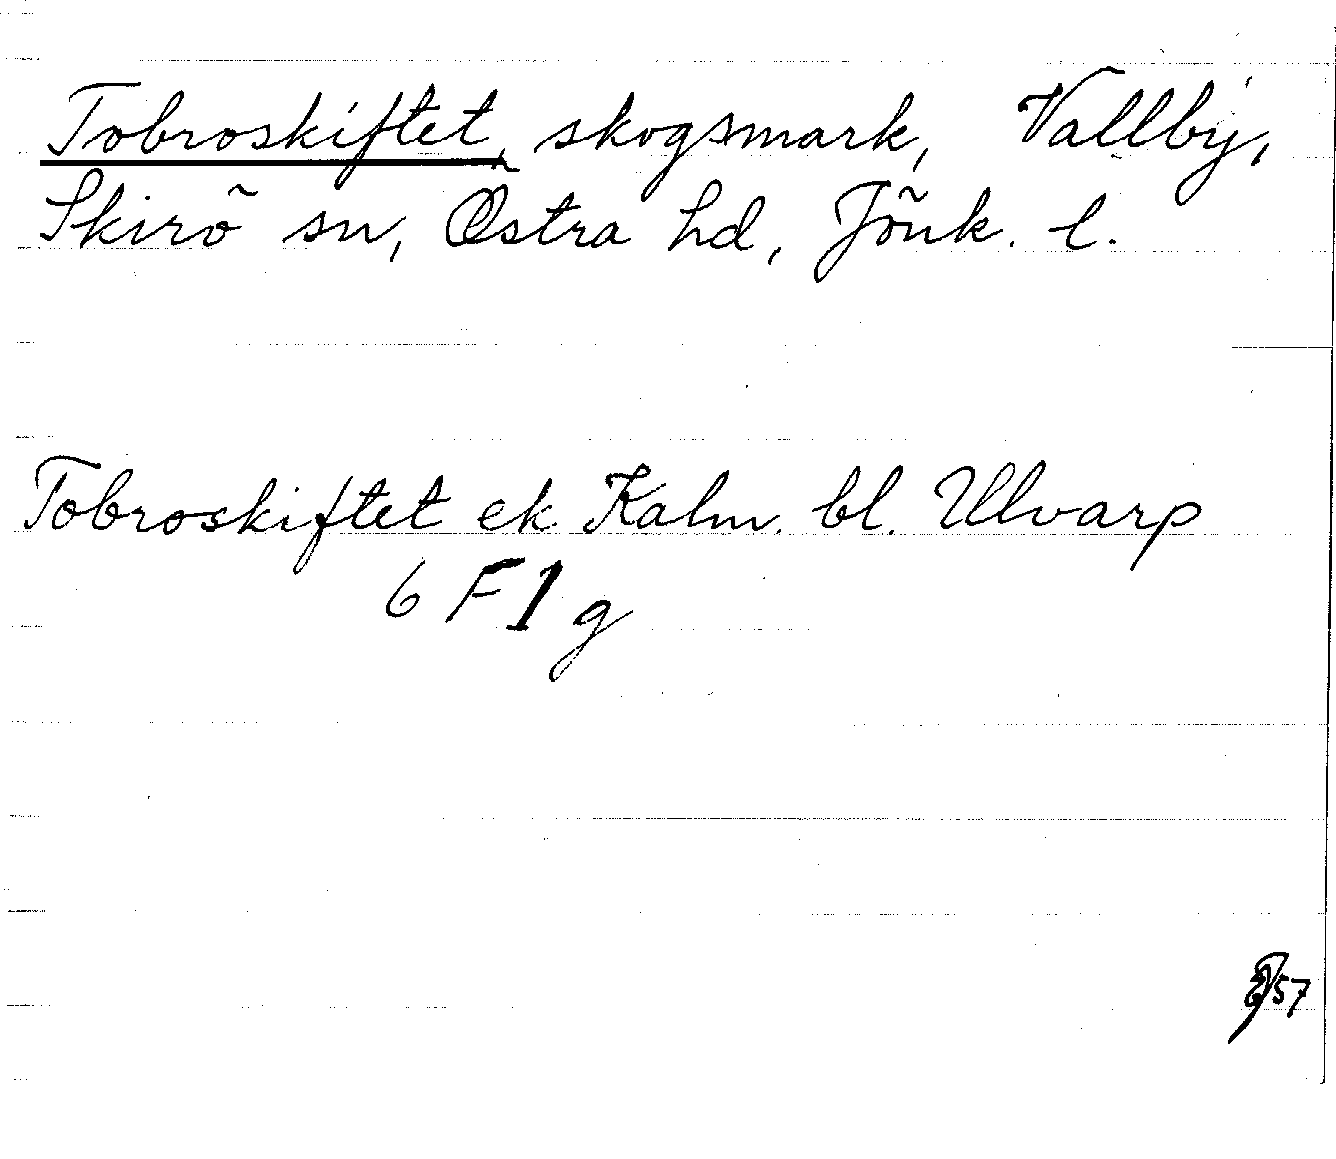 Tobroskiftet, skogsmark, Vallby,
Skirö sn, Östra hd, Jönk. l.
Tobroskiftet ek. Kalm. bl. Ulvarp
6 F 1 g
57